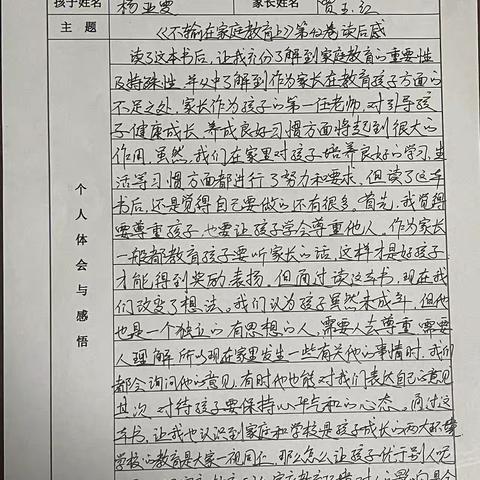 孩子姓名 杨亚雯 家长姓名 贾玉红
主 题 《不输在家庭教育上》第42卷读后感
个人体会与感悟
读了这本书后,让我充分了解到家庭教育的重要性
及特殊性,并从中了解到作为家长在教育孩子方面的
不足之处,家长作为孩子的第一任老师,对引导孩
子健康成长,养成良好习惯方面将起到很大的
作用,虽然,我们在家里对孩子培养良好的学习、生
活等习惯方面都进行了努力和要求,但读了这本
书后,还是觉得自己要做的还有很多。首先,我觉得
要尊重孩子,也要让孩子学会尊重他人,作为家长
一般都教育孩子要听家长的话,这样才是好孩子,
才能得到奖励、表扬,但通过读这本书,现在我
们改变了想法。我们认为孩子虽然未成年,但他
也是一个独立的有思想的人,需要人去尊重,需要
人理解,所以现在家里发生一些有关他的事情时,我们
都会询问他的意见,有时他也能对我们表达自己的意见
其次,对待孩子要保持心平气和的心态。通过这
本书,让我也认识到家庭和学校是孩子成长的两大环境
学校的教育是大家一视同仁,那么怎么让孩子优于别人呢